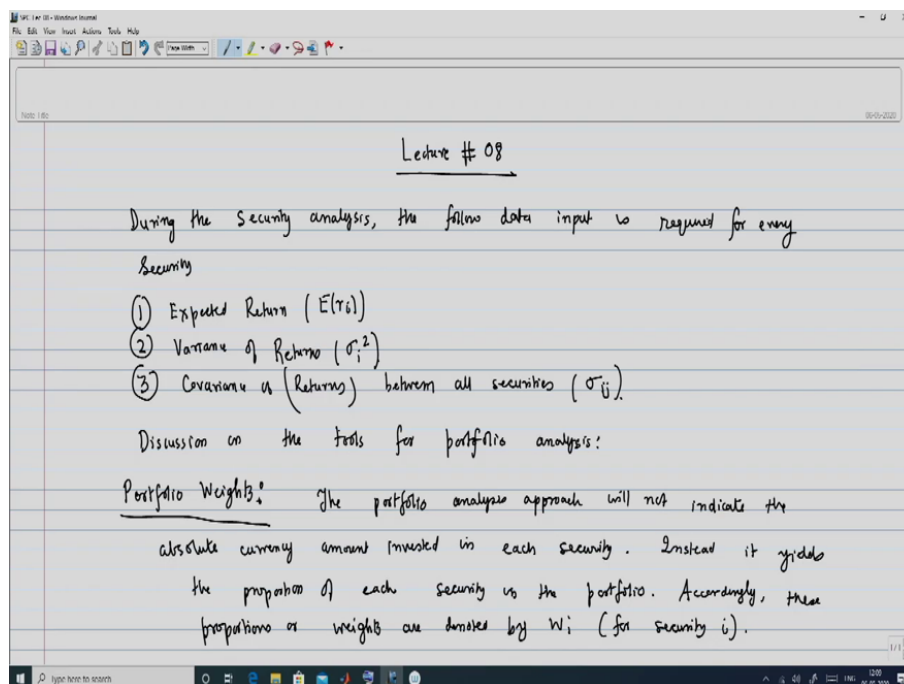 SPC Lec 08 - Windows Journal
File Edit View Insert Actions Tools Help
Page Width
Note Title
06-05-2020
Lecture # 08
During the Security analysis, the follow data input is required for every
Security
① Expected Return ( E(r_i) )
② Variance of Returns ( σ_i^2 )
③ Covariance of (Returns) between all securities ( σ_ij ).
Discussion on the tools for portfolio analysis:
Portfolio Weights: The portfolio analysis approach will not indicate the
absolute currency amount invested in each security. Instead it yields
the proportion of each security in the portfolio. Accordingly, these
proportions or weights are denoted by W_i (for security i).
1/1
Type here to search
ENG
12:09